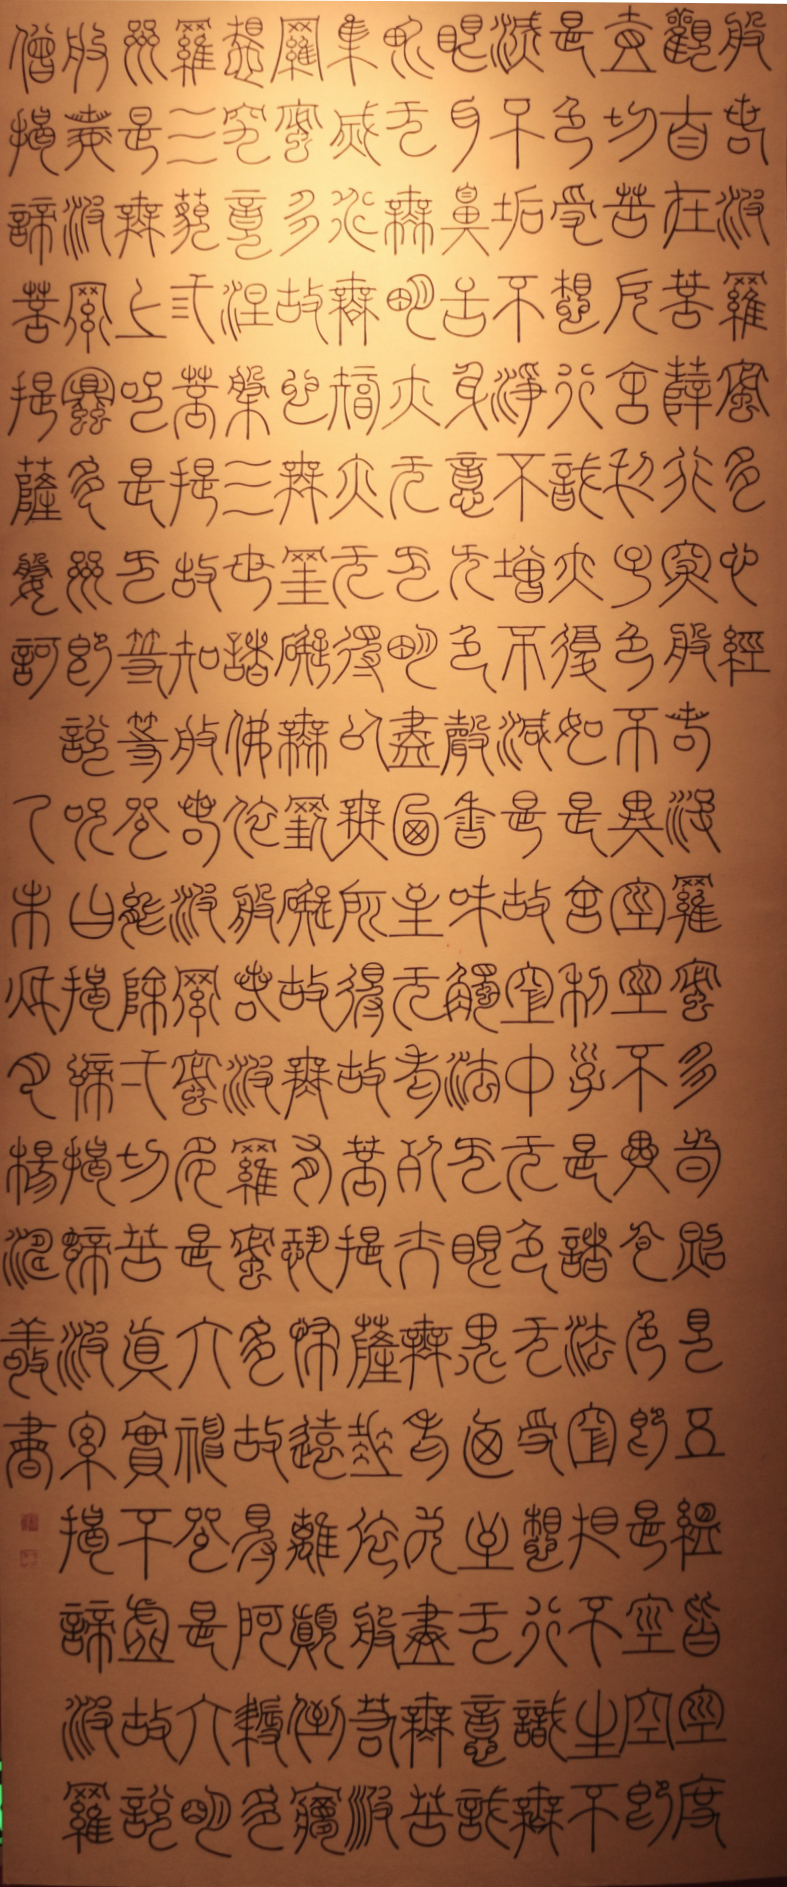 般若波羅蜜多心經
觀自在菩薩行深般若波羅蜜多時照見五蘊皆空度
壹切苦厄舍利子色不異空空不異色色即是空空即
是色受想行識亦復如是舍利子是諸法空相不生不
滅不垢不淨不增不減是故空中无色无受想行識無
眼耳鼻舌身意无色聲香味觸法无眼界乃至无意識
界无無明亦无无明盡乃至无老死亦無老死盡無苦
集滅道無智亦无得以無所得故菩提薩埵依般若波
羅蜜多故心無罣礙無罣礙故無有恐怖遠離顛倒夢
想究竟涅槃三世諸佛依般若波羅蜜多故得阿耨多
羅三藐三菩提故知般若波羅蜜多是大神咒是大明
咒是無上咒是无等等咒能除一切苦真實不虛故說
般若波羅蜜多咒即說咒曰揭諦揭諦波羅揭諦波羅
僧揭諦菩提薩婆訶 丁未 月楊 義書